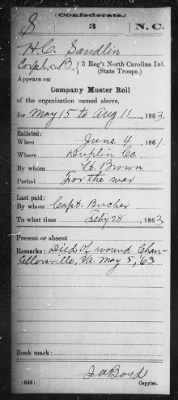 Confederate.
S 3 N.C.
H.C. Sandlin
Corpl, Co. B, 3 Reg't North Carolina Inf.
(State Troops.)
Appears on
Company Muster Roll
of the organization named above,
for May 15 to Aug 11, 1863.
Enlisted:
When June 4, 1861.
Where Duplin Co
By whom Lt Brown
Period For the war
Last paid:
By whom Capt. Bucher
To what time Feby 28, 1863.
Present or absent
Remarks: Died of wound Chan-
cellorsville, Va. May 5, '63
Book mark:
(642) Copyist.